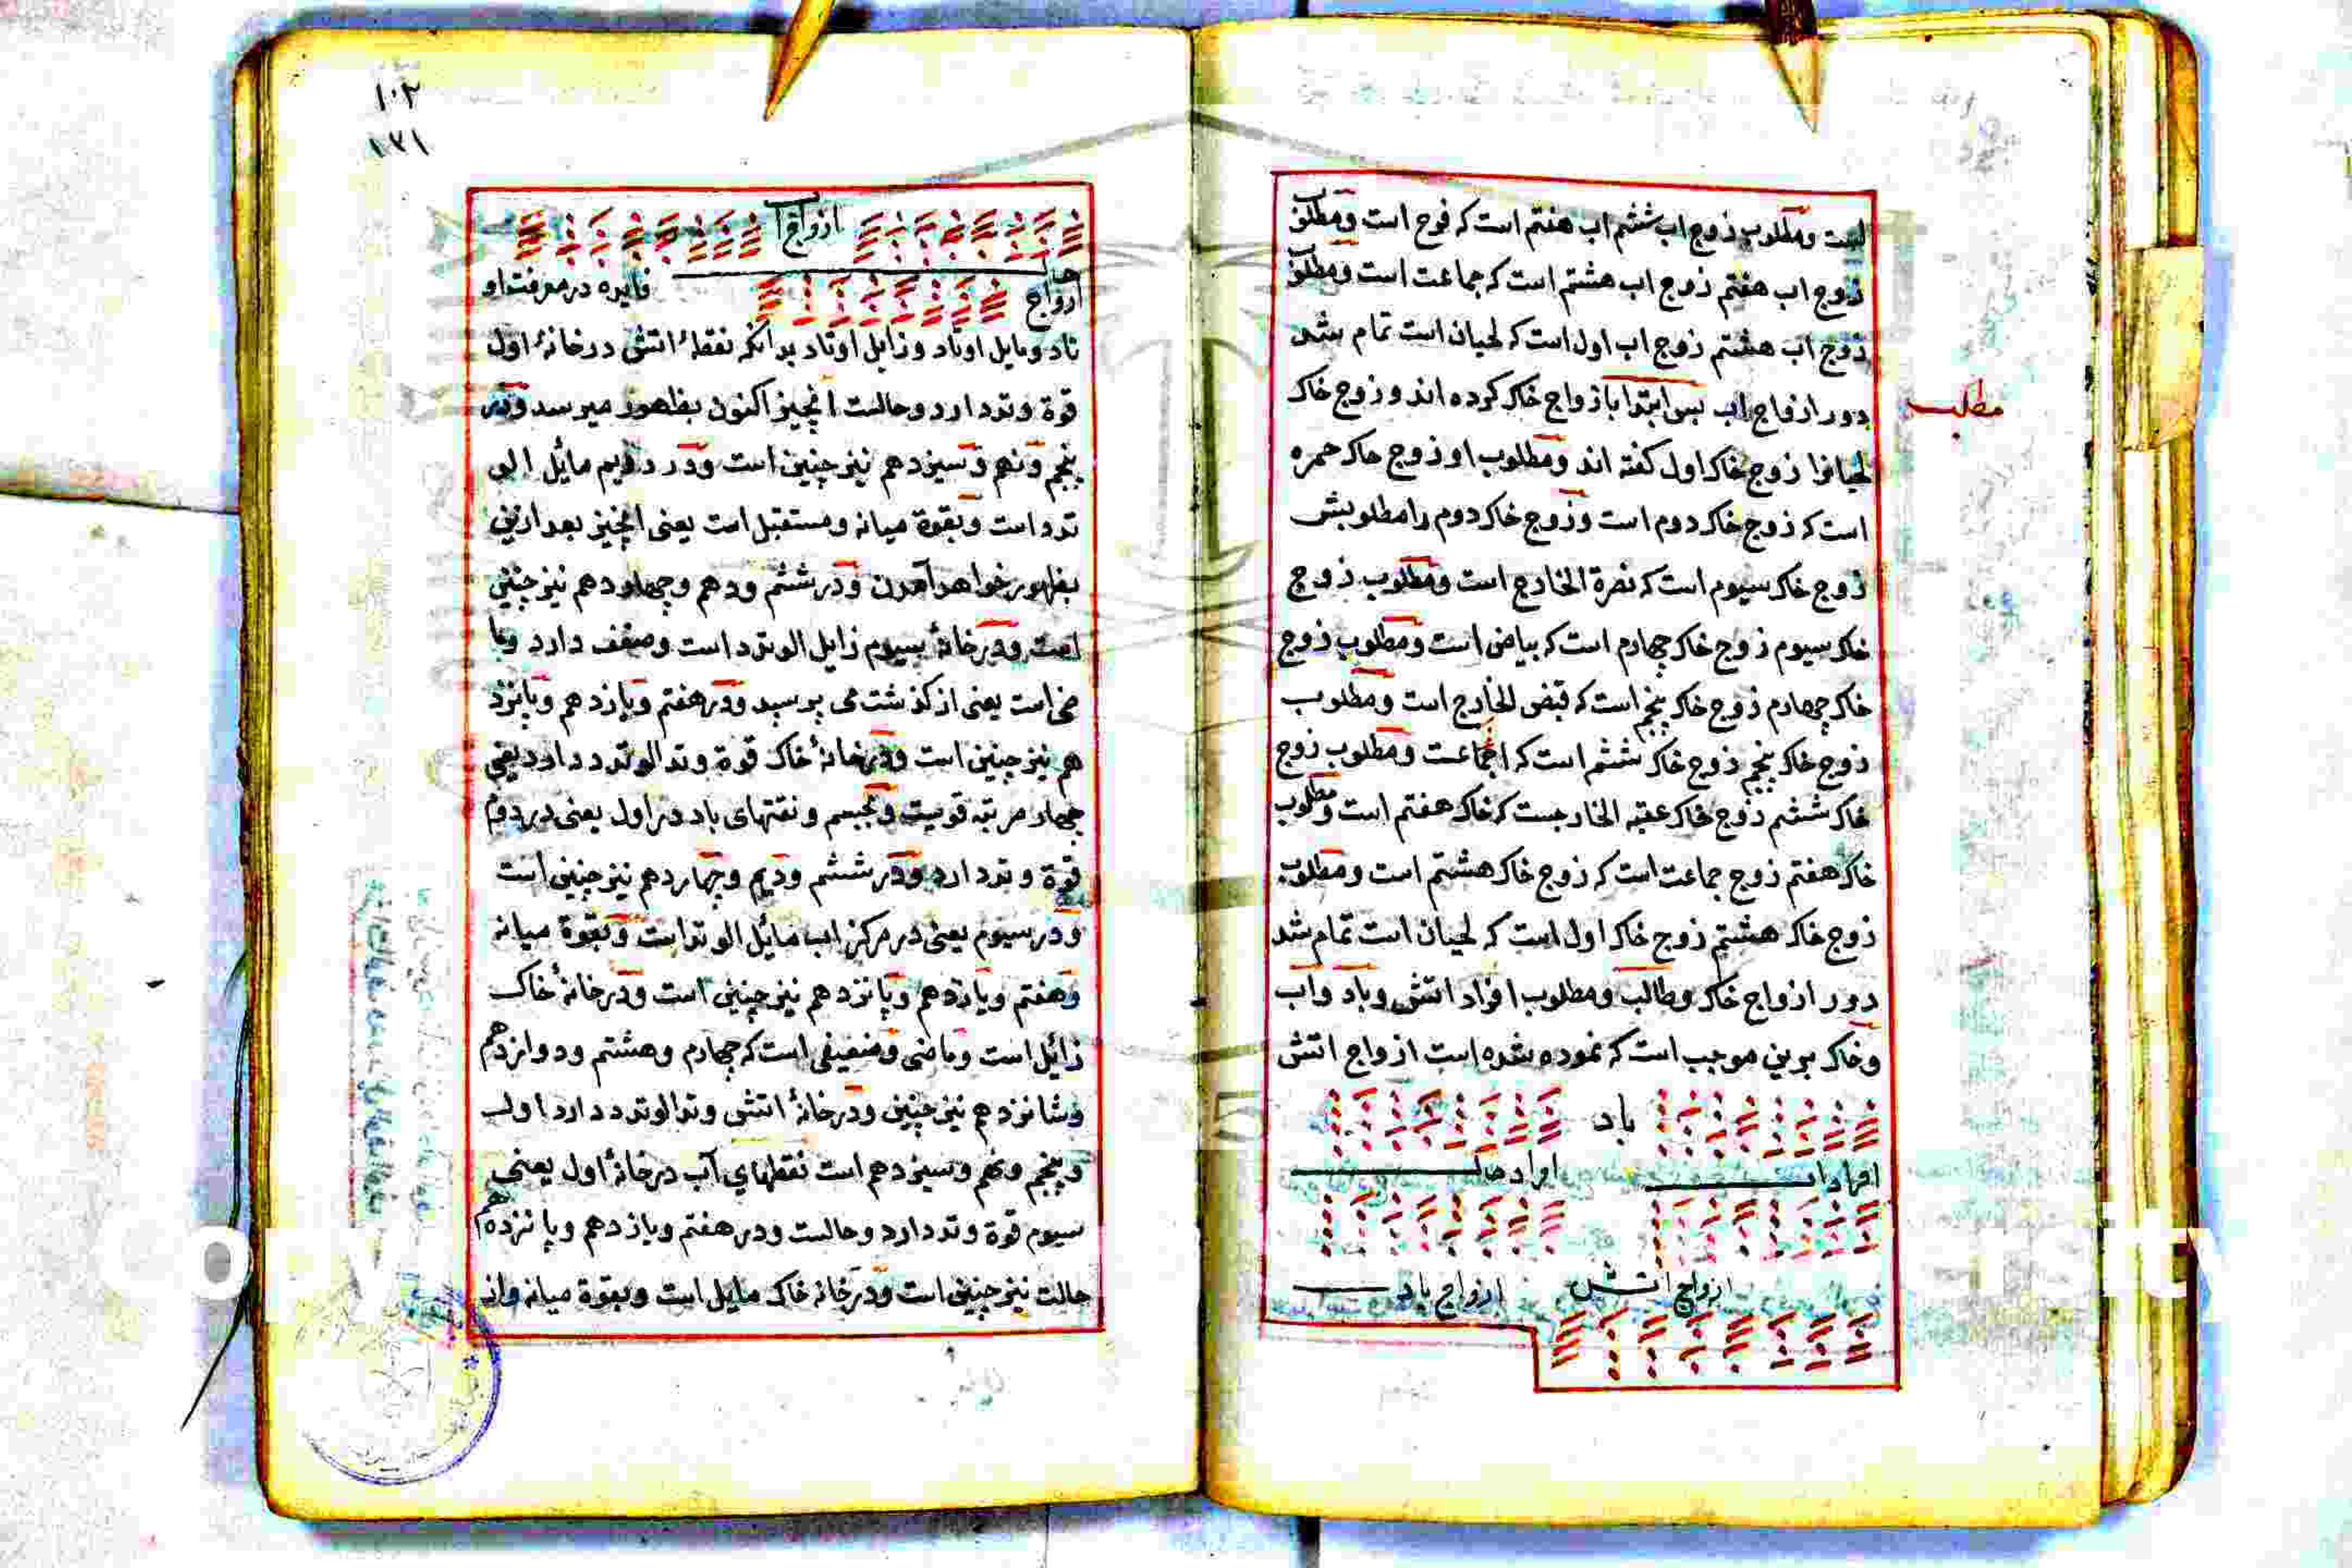 است ومطلوب زوج اب ششم اب هفتم است که فرح است ومطلوب
زوج اب هفتم زوج اب هشتم است که جماعت است ومطلوب
زوج اب هشتم زوج اب اول است که لحیان است تمام شد
دور ازواج اب پس ابتدا بازواج خاک کرده اند و زوج خاک
لحیانرا زوج خاک اول کفته اند ومطلوب او زوج خاک حمره
است که زوج خاک دوم است وزوج خاک دوم را مطلوبش
زوج خاک سیوم است که نصرة الخارج است ومطلوب زوج
خاک سیوم زوج خاک چهارم است که بیاض است ومطلوب زوج
خاک چهارم زوج خاک پنجم است که قبض الخارج است ومطلوب
زوج خاک پنجم زوج خاک ششم است که اجماعت ومطلوب زوج
خاک ششم زوج خاک عقبه الخارجست که خاک هفتم است ومطلوب
خاک هفتم زوج جماعت است که زوج خاک هشتم است ومطلوب
زوج خاک هشتم زوج خاک اول است که لحیان است تمام شد
دور ازواج خاک وطالب ومطلوب افراد اتش وباد واب
وخاک برین موجب است که نموده شده است ازواج اتش
باد
افراد اب افراد خاک
ازواج اتش ازواج باد
مطلب
۱۰۲
۱۷۱
ازواج اب
ازواج خاک فایره در معرفت او
تاد ومایل اوتاد وزایل اوتاد بدانکه نقطهٔ اتش در خانهٔ اول
قوة وتد دارد وحالست انچیز اکنون بظهور میرسد ودر
پنجم ونهم وسیزدهم نیز چنین است ودر دویم مائل الی
تد است وبقوة میانه ومستقبل است یعنی انچیز بعد ازین
بظهور خواهد آمدن ودر ششم ودهم وچهاردهم نیز چنین
است ودر خانهٔ سیوم زایل الوتد است وضعف دارد وما
ضی است یعنی از کذشت می پرسید ودر هفتم ویازدهم وپانزد
هم نیز چنین است ودر خانهٔ خاک قوة وتد الوتد دارد یعنی
چهار مرتبه قویست ونقتهای باد در اول یعنی در دوم
قوة وتد دارد ودر ششم ودیم وچهاردهم نیز چنین است
ودر سیوم یعنی در مرکز اب مایل الوتد است وبقوة میانه
وهفتم ویازدهم وپانزدهم نیز چنین است ودر خانهٔ خاک
زائل است وماضی وضعیفی است که چهارم وهشتم ودوازدهم
وشانزدهم نیز چنین ودر خانهٔ اتش وتد الوتد دارد اول
وپنجم ونهم وسیزدهم است نقطهای آب در خانهٔ اول یعنی
سیوم قوة وتد دارد وحالست ودر هفتم ویازدهم وپانزدهم
حالت نیز چنین است ودر خانه خاک مایل است وبقوة میانه واز